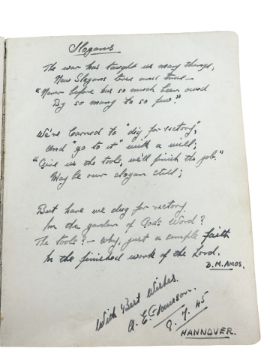 Slogans
The war has taught us many things,
New Slogans tried and true —
"Never before has so much been owed
By so many to so few."
We've learned to "dig for victory",
And "go to it" with a will;
"Give us the tools, we'll finish the job,"
May be our slogan still;
But have we dug for victory
In the garden of God's Word?
The tools? — Why, just a simple faith
In the finished work of the Lord.
D. M. AMOS.
With Best Wishes.
A. E.
9. 7. 45
HANNOVER.